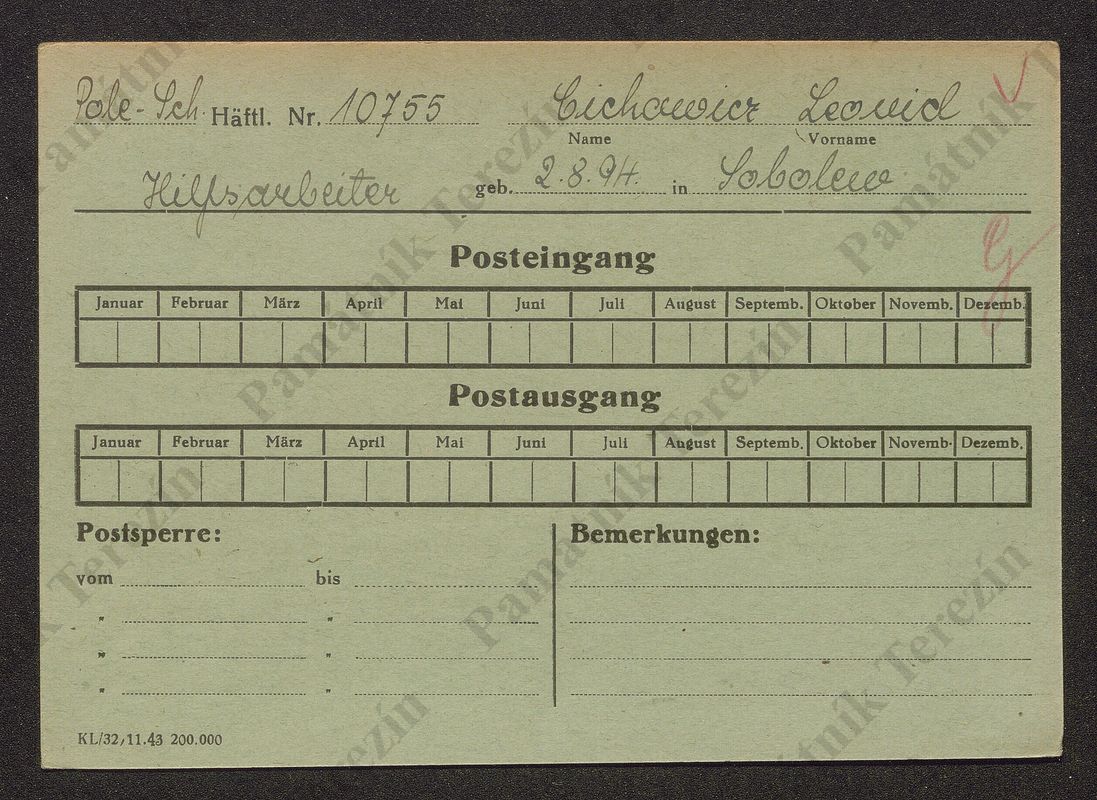 Pole-Sch. Häftl. Nr. 10755 Cichowicz Leonid
Name Vorname
Hilfsarbeiter geb. 2.8.94. in Sobolew
Posteingang
Januar Februar März April Mai Juni Juli August Septemb. Oktober Novemb. Dezemb.
Postausgang
Januar Februar März April Mai Juni Juli August Septemb. Oktober Novemb. Dezemb.
Postsperre: Bemerkungen:
vom bis
" "
" "
" "
KL/32/11.43 200.000
Památník Terezín
Památník Terezín
Památník Terezín
Památník Terezín